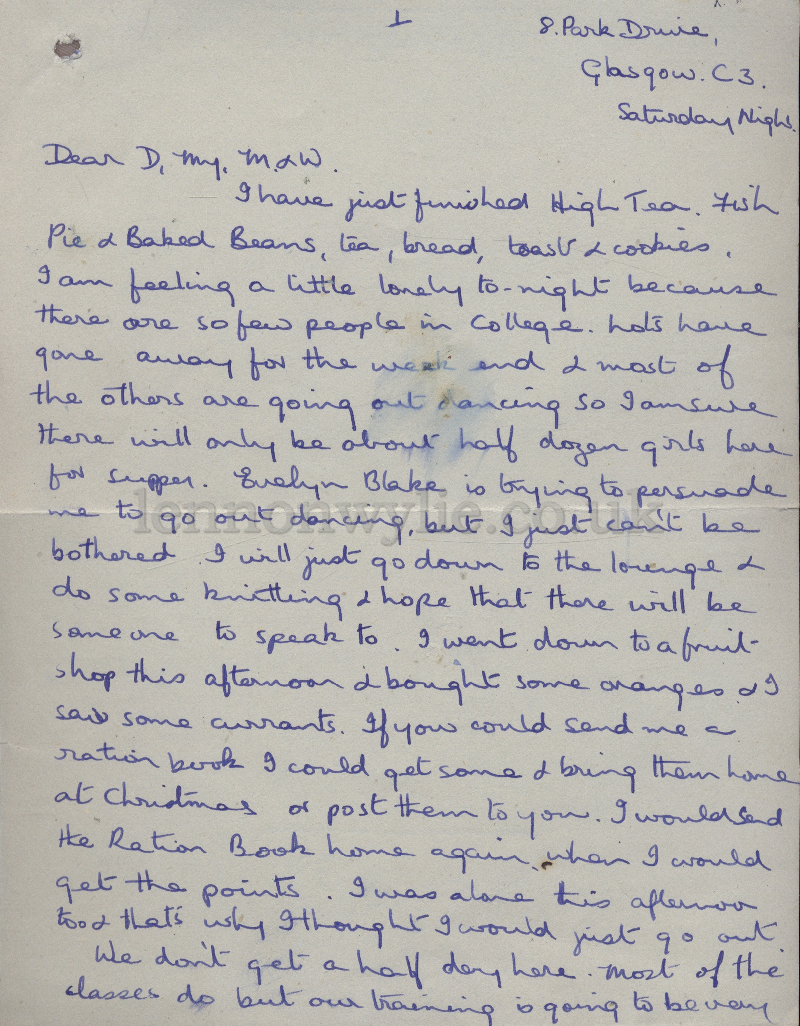 1
8. Park Drive,
Glasgow. C3.
Saturday Night.
Dear D, My, M. & W.
I have just finished High Tea. Fish
Pie & Baked Beans, tea, bread, toast & cookies.
I am feeling a little lonely to-night because
there are so few people in College. Lots have
gone away for the week end & most of
the others are going out dancing so I am sure
there will only be about half dozen girls here
for supper. Evelyn Blake is trying to persuade
me to go out dancing, but I just can't be
lennonwylie.co.uk
bothered. I will just go down to the lounge &
do some knitting & hope that there will be
someone to speak to. I went down to a fruit
shop this afternoon & bought some oranges & I
saw some currants. If you could send me a
ration book I could get some & bring them home
at Christmas or post them to you. I would send
the Ration Book home again when I would
get the points. I was alone this afternoon
too & that's why I thought I would just go out.
We don't get a half day here. Most of the
classes do but our training is going to be very